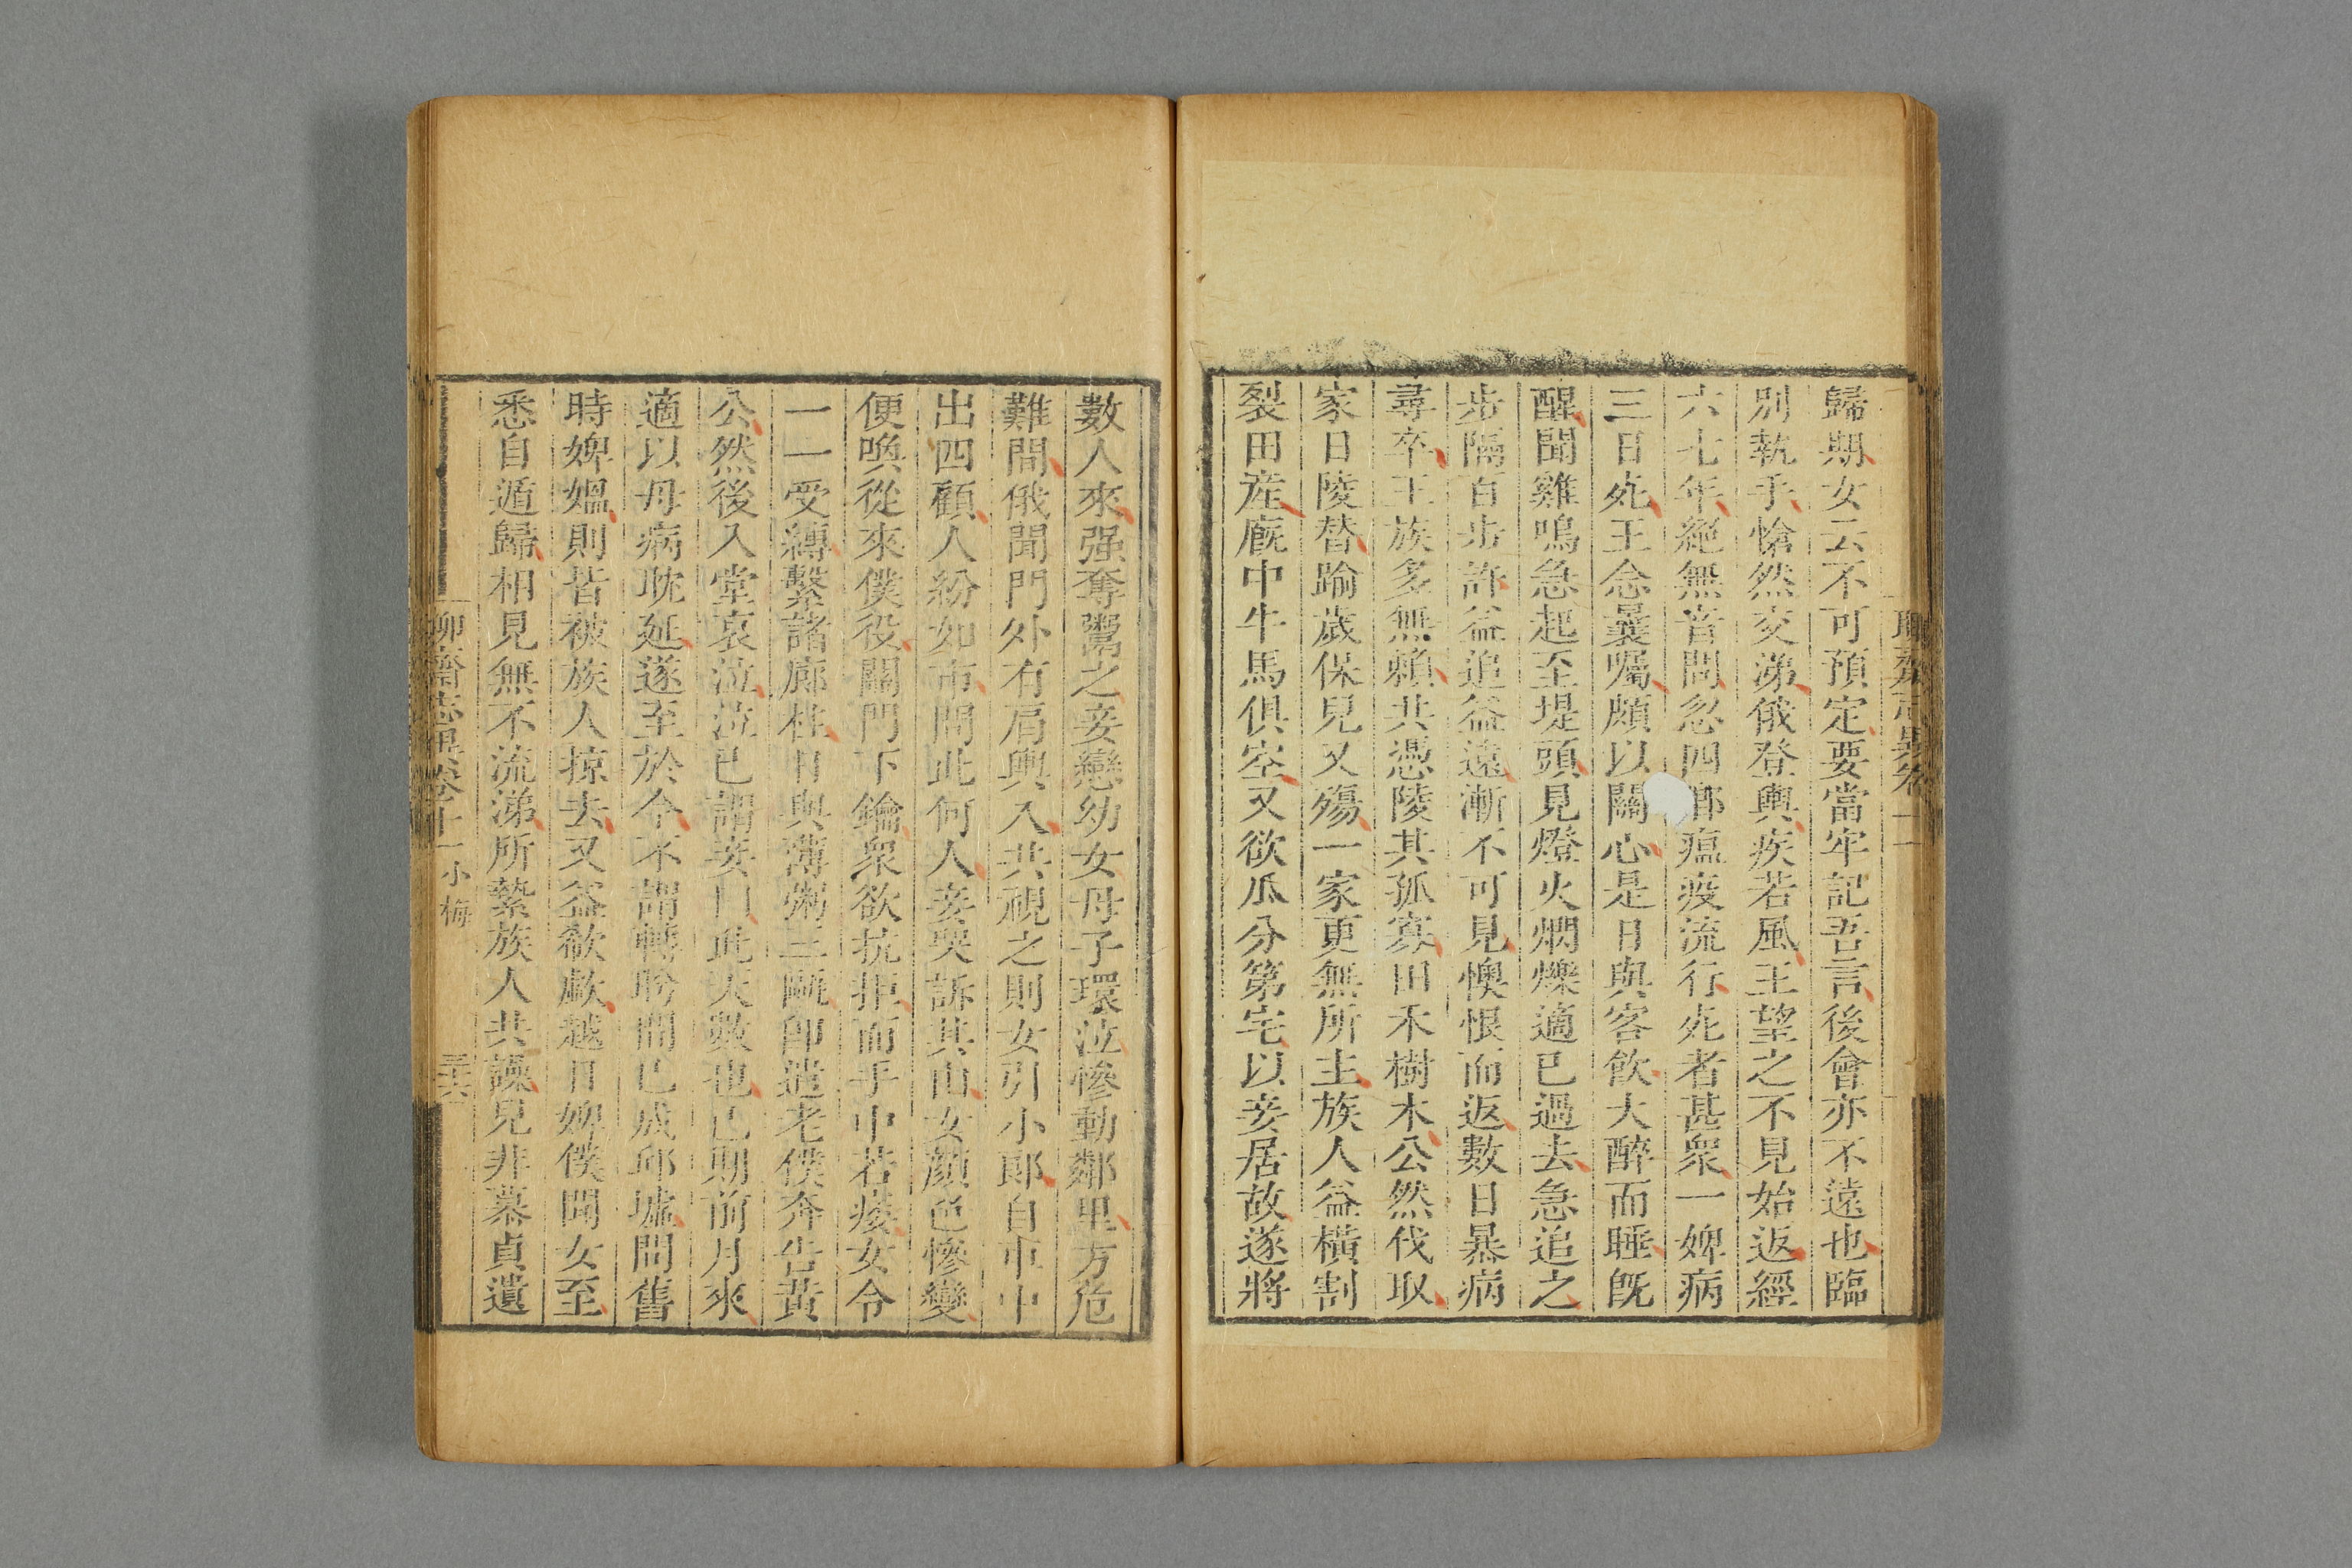 歸期女云不可預定要當牢記吾言後會亦不遠也臨
別執手愴然交涕俄登輿疾若風王望之不見始返經
六七年絕無音問忽四鄉瘟疫流行死者甚衆一婢病
三日死王念曩囑頗以關心是日與客飲大醉而睡旣
醒聞雞鳴急起至堤頭見燈火爛爍適已過去急追之
步隔百步許益追益遠漸不可見懊恨而返數日暴病
尋卒王族多無賴共憑陵其孤寡田禾樹木公然伐取
家日陵替踰歲保兒又殤一家更無所主族人益橫割
裂田產廐中牛馬俱空又欲瓜分第宅以妾居故遂將
數人來强奪鬻之妾戀幼女母子環泣慘動鄰里方危
難間俄聞門外有肩輿入共視之則女引小郎自車中
出四顧人紛如市問此何人妾哭訴其由女顏色慘變
便喚從來僕役關門下鑰衆欲抗拒而手中若痿女令
一一受縛繫諸廊柱日與薄粥三甌卽遣老僕奔告黃
公然後入堂哀泣泣已謂妾曰此天數也已期前月來
適以母病耽延遂至於今不謂轉盼間已成邱墟問舊
時婢媼則皆被族人掠去又益欷歔越日婢僕聞女至
悉自遁歸相見無不流涕所縶族人共譟兒非慕貞遺
聊齋志異卷十一 小梅 三六